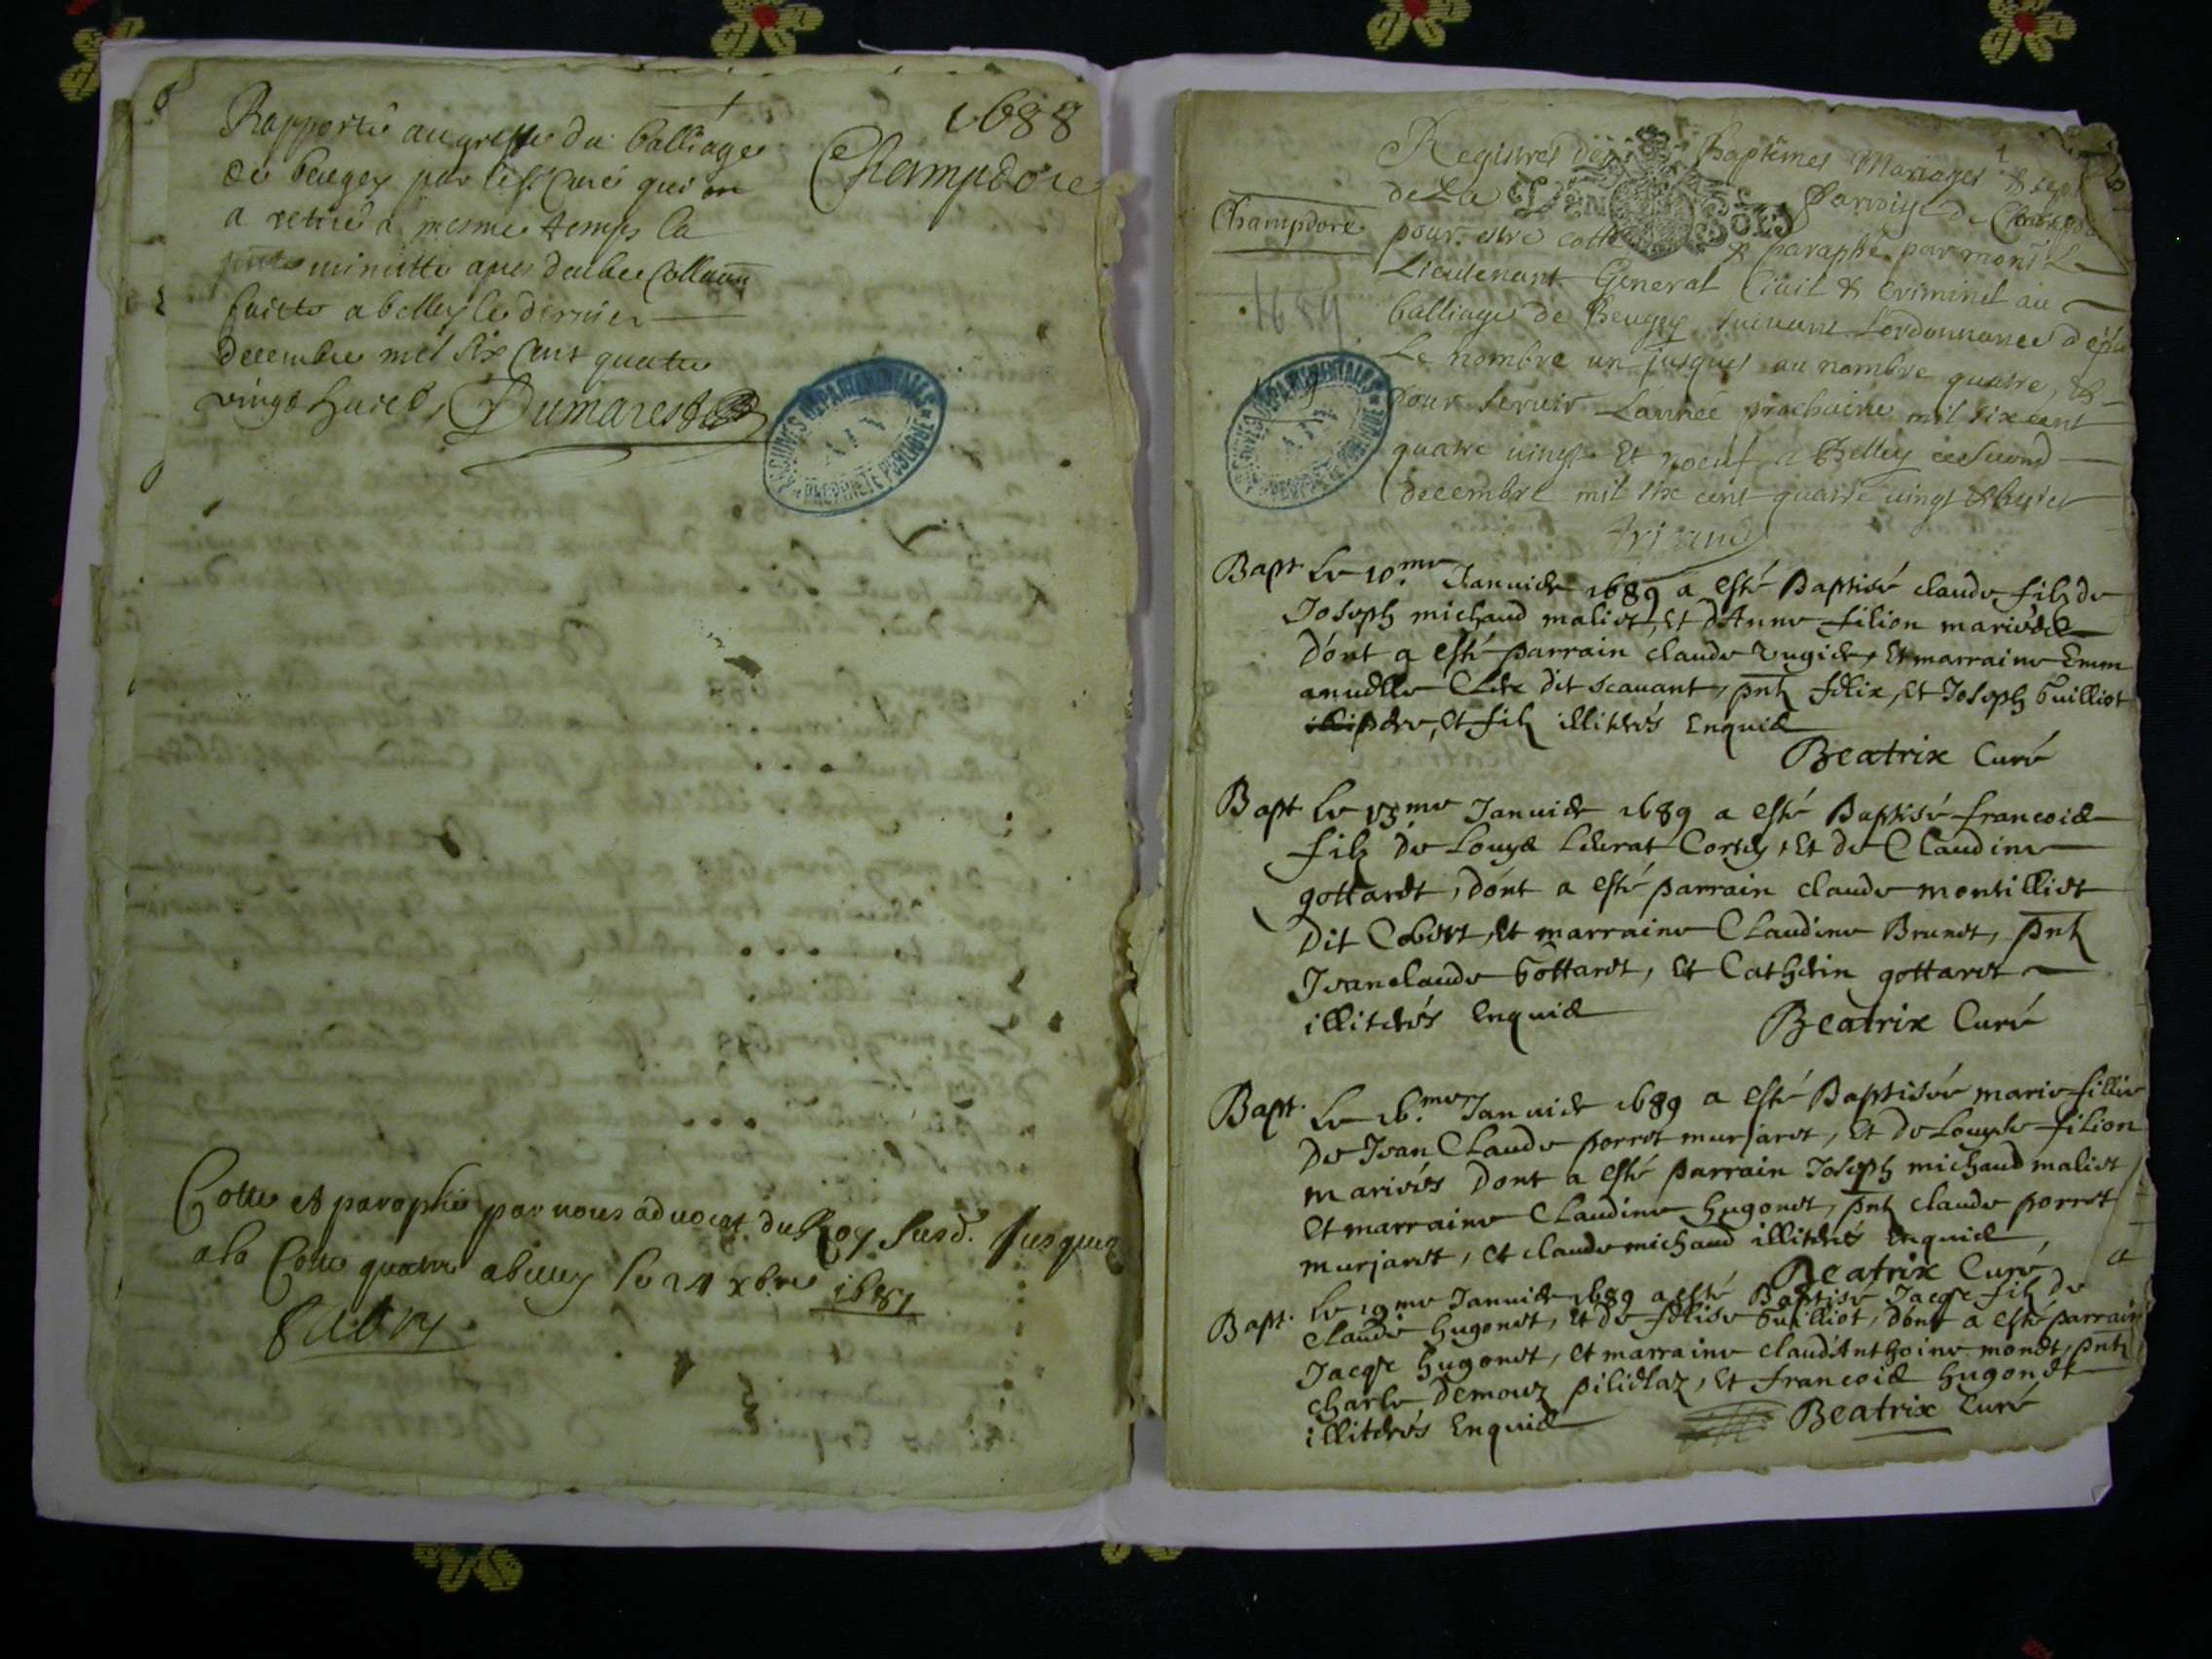 1688
Champdore
Rapporté au greffe du balliage
de beugey par le sr. Curé qui en
a retiré a mesme temps la
minutte apres deube Collaon
faicte a belley le dernier
decembre mil six Cent quatre
vingt huict, Dumarest
ARCHIVES DEPARTEMENTALES
AIN
PROPRIÉTÉ PUBLIQUE
Cotte et paraphé par nous advocat du Roy susd. jusques
a la Cotte quatre a belley le 24 xbre 1687
Champdore
1689
Registres des Baptêmes Mariages &
de La Parroisse de
pour estre cotté & paraphé par monsr Le
Lieutenant General Ciuil & Criminel au
balliage de Beugey suiuant Lordonnance
Le nombre un jusques au nombre quatre, &
pour seruir Lannée prochaine mil six cent
quatre uingt Et noeuf a Belley ce second
decembre mil six cent quatre uingt & huict
ARCHIVES DEPARTEMENTALES
AIN
PROPRIÉTÉ PUBLIQUE
Bapt Le 10.me Januier 1689 a esté Baptisé claude filz de
Joseph michaud maliet, et d'Anne filion mariés
Dont a esté parrain claude Eugier, et marraine Emm
anuelle Clerc dit scauant, pntz felix, et Joseph Guilliot
pere, et filz illiterés Enquis
Beatrix Curé
Bapt Le 13me Januier 1689 a esté Baptisé francois
filz de Louys Literat Cortey, et de Claudine
gottaret, Dont a esté parrain claude montilliet
Dit Cobert, et marraine Claudine Brunet, pntz
Jeanclaude Gottaret, et Catherin gottaret
illiterés Enquis
Beatrix Curé
Bapt. Le 16.me Januier 1689 a esté Baptisée marie fillie
De Jean Claude perret murjaret, et de Louyse filion
mariés Dont a esté parrain Joseph michaud maliet
Et marraine Claudine hugonet, pntz claude perret
murjaret, et claude michaud illiterés Enquis
Beatrix Curé
Bapt. Le 19me Januier 1689 a esté Baptisé Jacqe filz de
Claude hugonet, et de felise Guilliot, Dont a esté parrain
Jacqe hugonet, et marraine claud'Anthoine monet, pntz
charle Demouz pilielaz, et francois hugonet
illiterés Enquis
Beatrix Curé